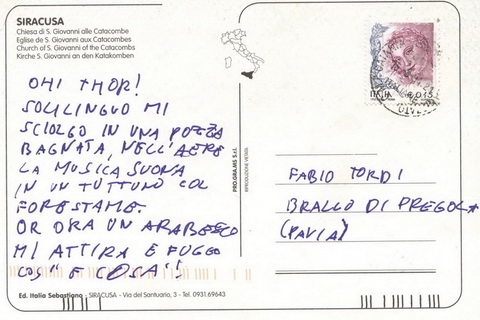 SIRACUSA
Chiesa di S. Giovanni alle Catacombe
Eglise de S. Giovanni aux Catacombes
Church of S. Giovanni of the Catacombs
Kirche S. Giovanni an den Katakomben
OHI THOR!
SOLILINGUO MI
SCIOLGO IN UNA POZZA
BAGNATA, NELL'AERE
LA MUSICA SUONA
IN UN TUTTUNO COL
FORESTAME.
OR ORA UN ARABESCO
MI ATTIRA E FUGGO
COSI' E COSA'!
Ed. Italia Sebastiano - SIRACUSA - Via del Santuario, 3 - Tel. 0931.69643
PRO.GRA.MS S.r.l.
RIPRODUZIONE VIETATA
ITALIA € 0,45
FABIO TORDI
BRALLO DI PREGOLA
(PAVIA)